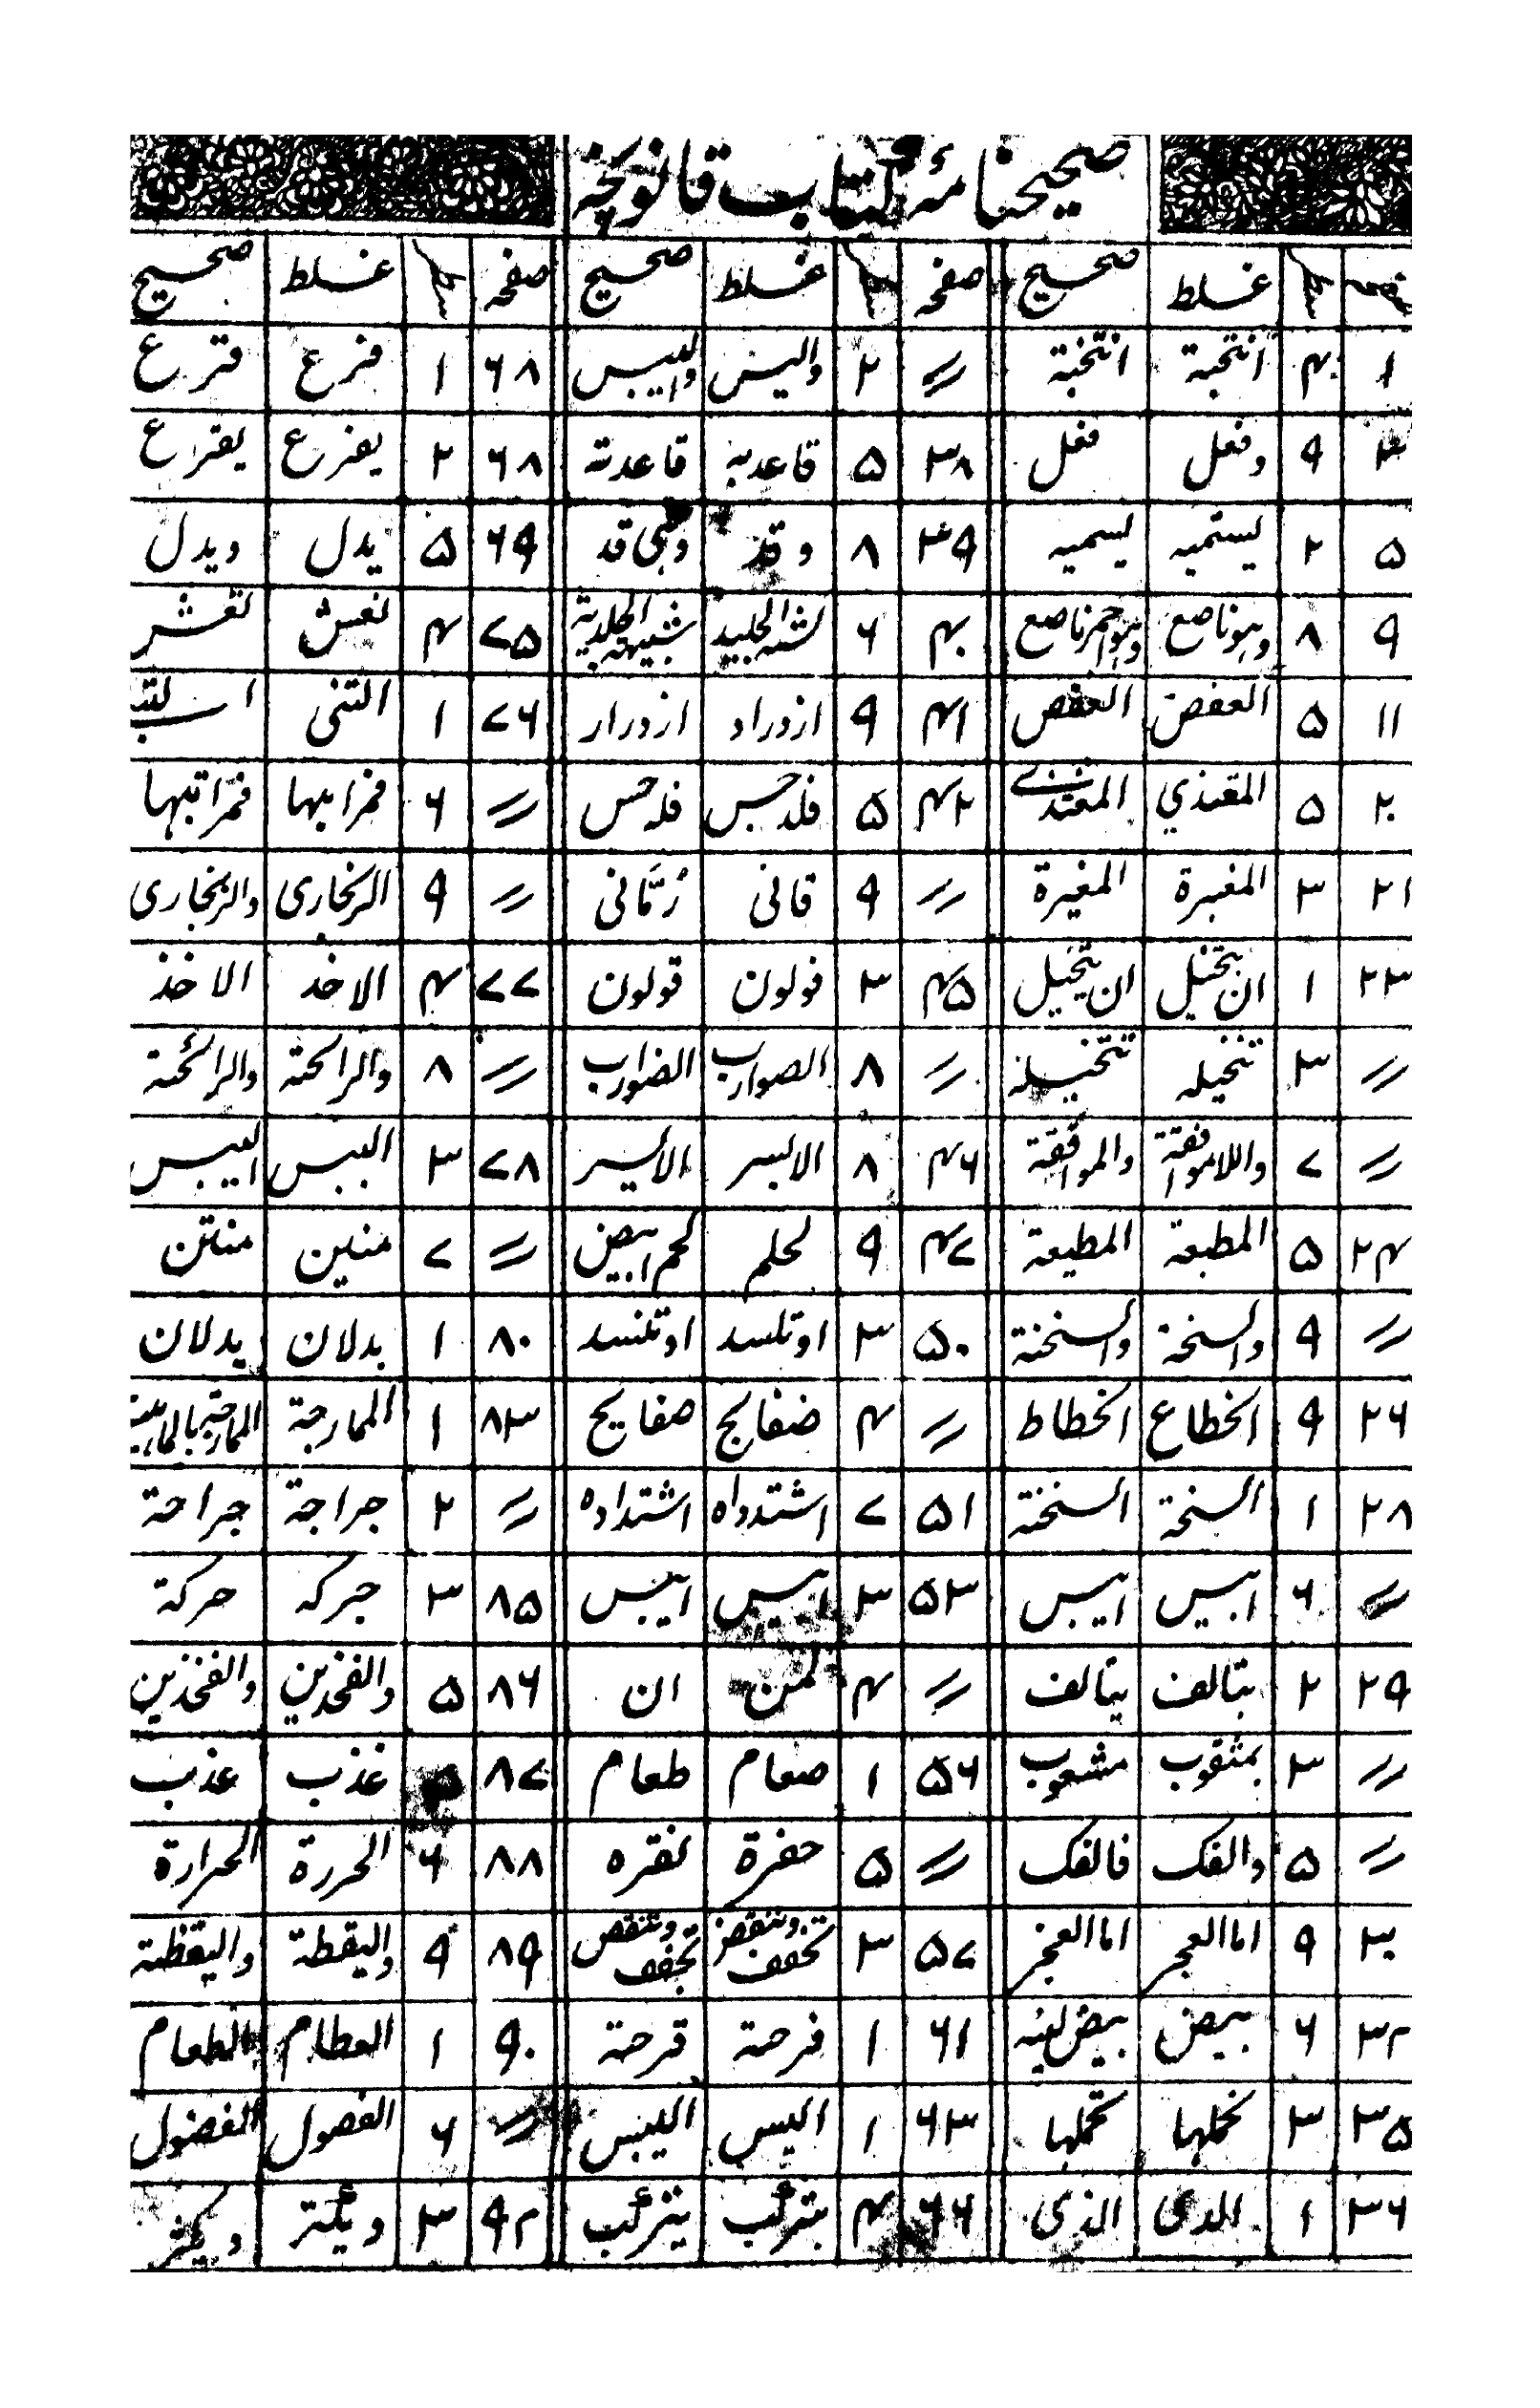 صحیحنامۂ کتاب قانونچہ
صفحہ سطر غلط صحیح صفحہ سطر غلط صحیح صفحہ سطر غلط صحیح
۱ ۴ انتحبة انتخبة 〃 ۲ والیس والیبس ۶۸ ۱ فزع قترع
۳ ۹ وفعل فعل ۳۸ ۵ قاعدبه قاعدته ۶۸ ۲ یفزع یقرع
۵ ۲ یستمیه یسمیه ۳۹ ۸ وقد وهی قد ۶۹ ۵ یدل ویدل
۹ ۸ وہوناصع وہواحمرناصع ۴۰ ۶ الجلید شبیهة الجلدیة ۷۵ ۴ نعش تقشر
۱۱ ۵ العفض العفص ۴۱ ۹ ازوراد ازورار ۷۶ ۱ التنی
۲۰ ۵ المقنذی المغتذے ۴۲ ۵ فلدحبس فله حس 〃 ۶ فمرابیها فمراتبها
۲۱ ۳ المغبرة المغیرة 〃 ۹ قانی رُمّانی 〃 ۹ الزنخاری والزنجاری
۲۳ ۱ ان بتخیل ان یتخیل ۴۵ ۳ فولون قولون ۷۷ ۴ الاخد الاخذ
〃 ۳ تنخیله تتخیلة 〃 ۸ الصوارب الضوارب 〃 ۸ والراکحة والرائحة
〃 ۷ واللاموافقة والموافقة ۴۶ ۸ الالبسر الایسر ۷۸ ۳ البیس الیبس
۲۴ ۵ المطبعة المطیعة ۴۷ ۹ لحلم لحم ابیض 〃 ۷ منین منتن
〃 ۹ والسنحة والسخنة ۵۰ ۳ اوتلسد اوتنسد ۸۰ ۱ بدلان یدلان
۲۶ ۹ الخطاع الخطاط 〃 ۴ ضفایح صفایح ۸۳ ۱ الممارجة
۲۸ ۱ السنحة السخنة ۵۱ ۷ اشتدواہ اشتدادہ 〃 ۲ جراجة جراحة
〃 ۶ ابیس ایبس ۵۳ ۳ ابیس ایبس ۸۵ ۳ جرکه حرکة
۲۹ ۲ بتالف یتالف 〃 ۴ لمن ان ۸۶ ۵ والفخدین والفخذین
〃 ۳ بمثقوب مشعوب ۵۶ ۱ صعام طعام ۸۷ غذب عذب
〃 ۵ والفک فالفک 〃 ۵ حفرة نقره ۸۸ ۶ الحررة الحرارة
۳۰ ۹ اماالعجر اماالعجز ۵۷ ۳ تخفف وتنقض تجفف وتنقص ۸۹ ۹ والیقطة والیقظة
۳۲ ۶ بیض بیض لینه ۶۱ ۱ فرحة قرحة ۹۰ ۱ العطام الطعام
۳۵ ۳ نحلها تحملها ۶۳ ۱ الیس الیبس 〃 ۶ الفصول الفضول
۳۶ ۱ الدی الذی ۶۶ ۴ بترکب یترکب ۹۲ ۳ ویکتر ویکثر